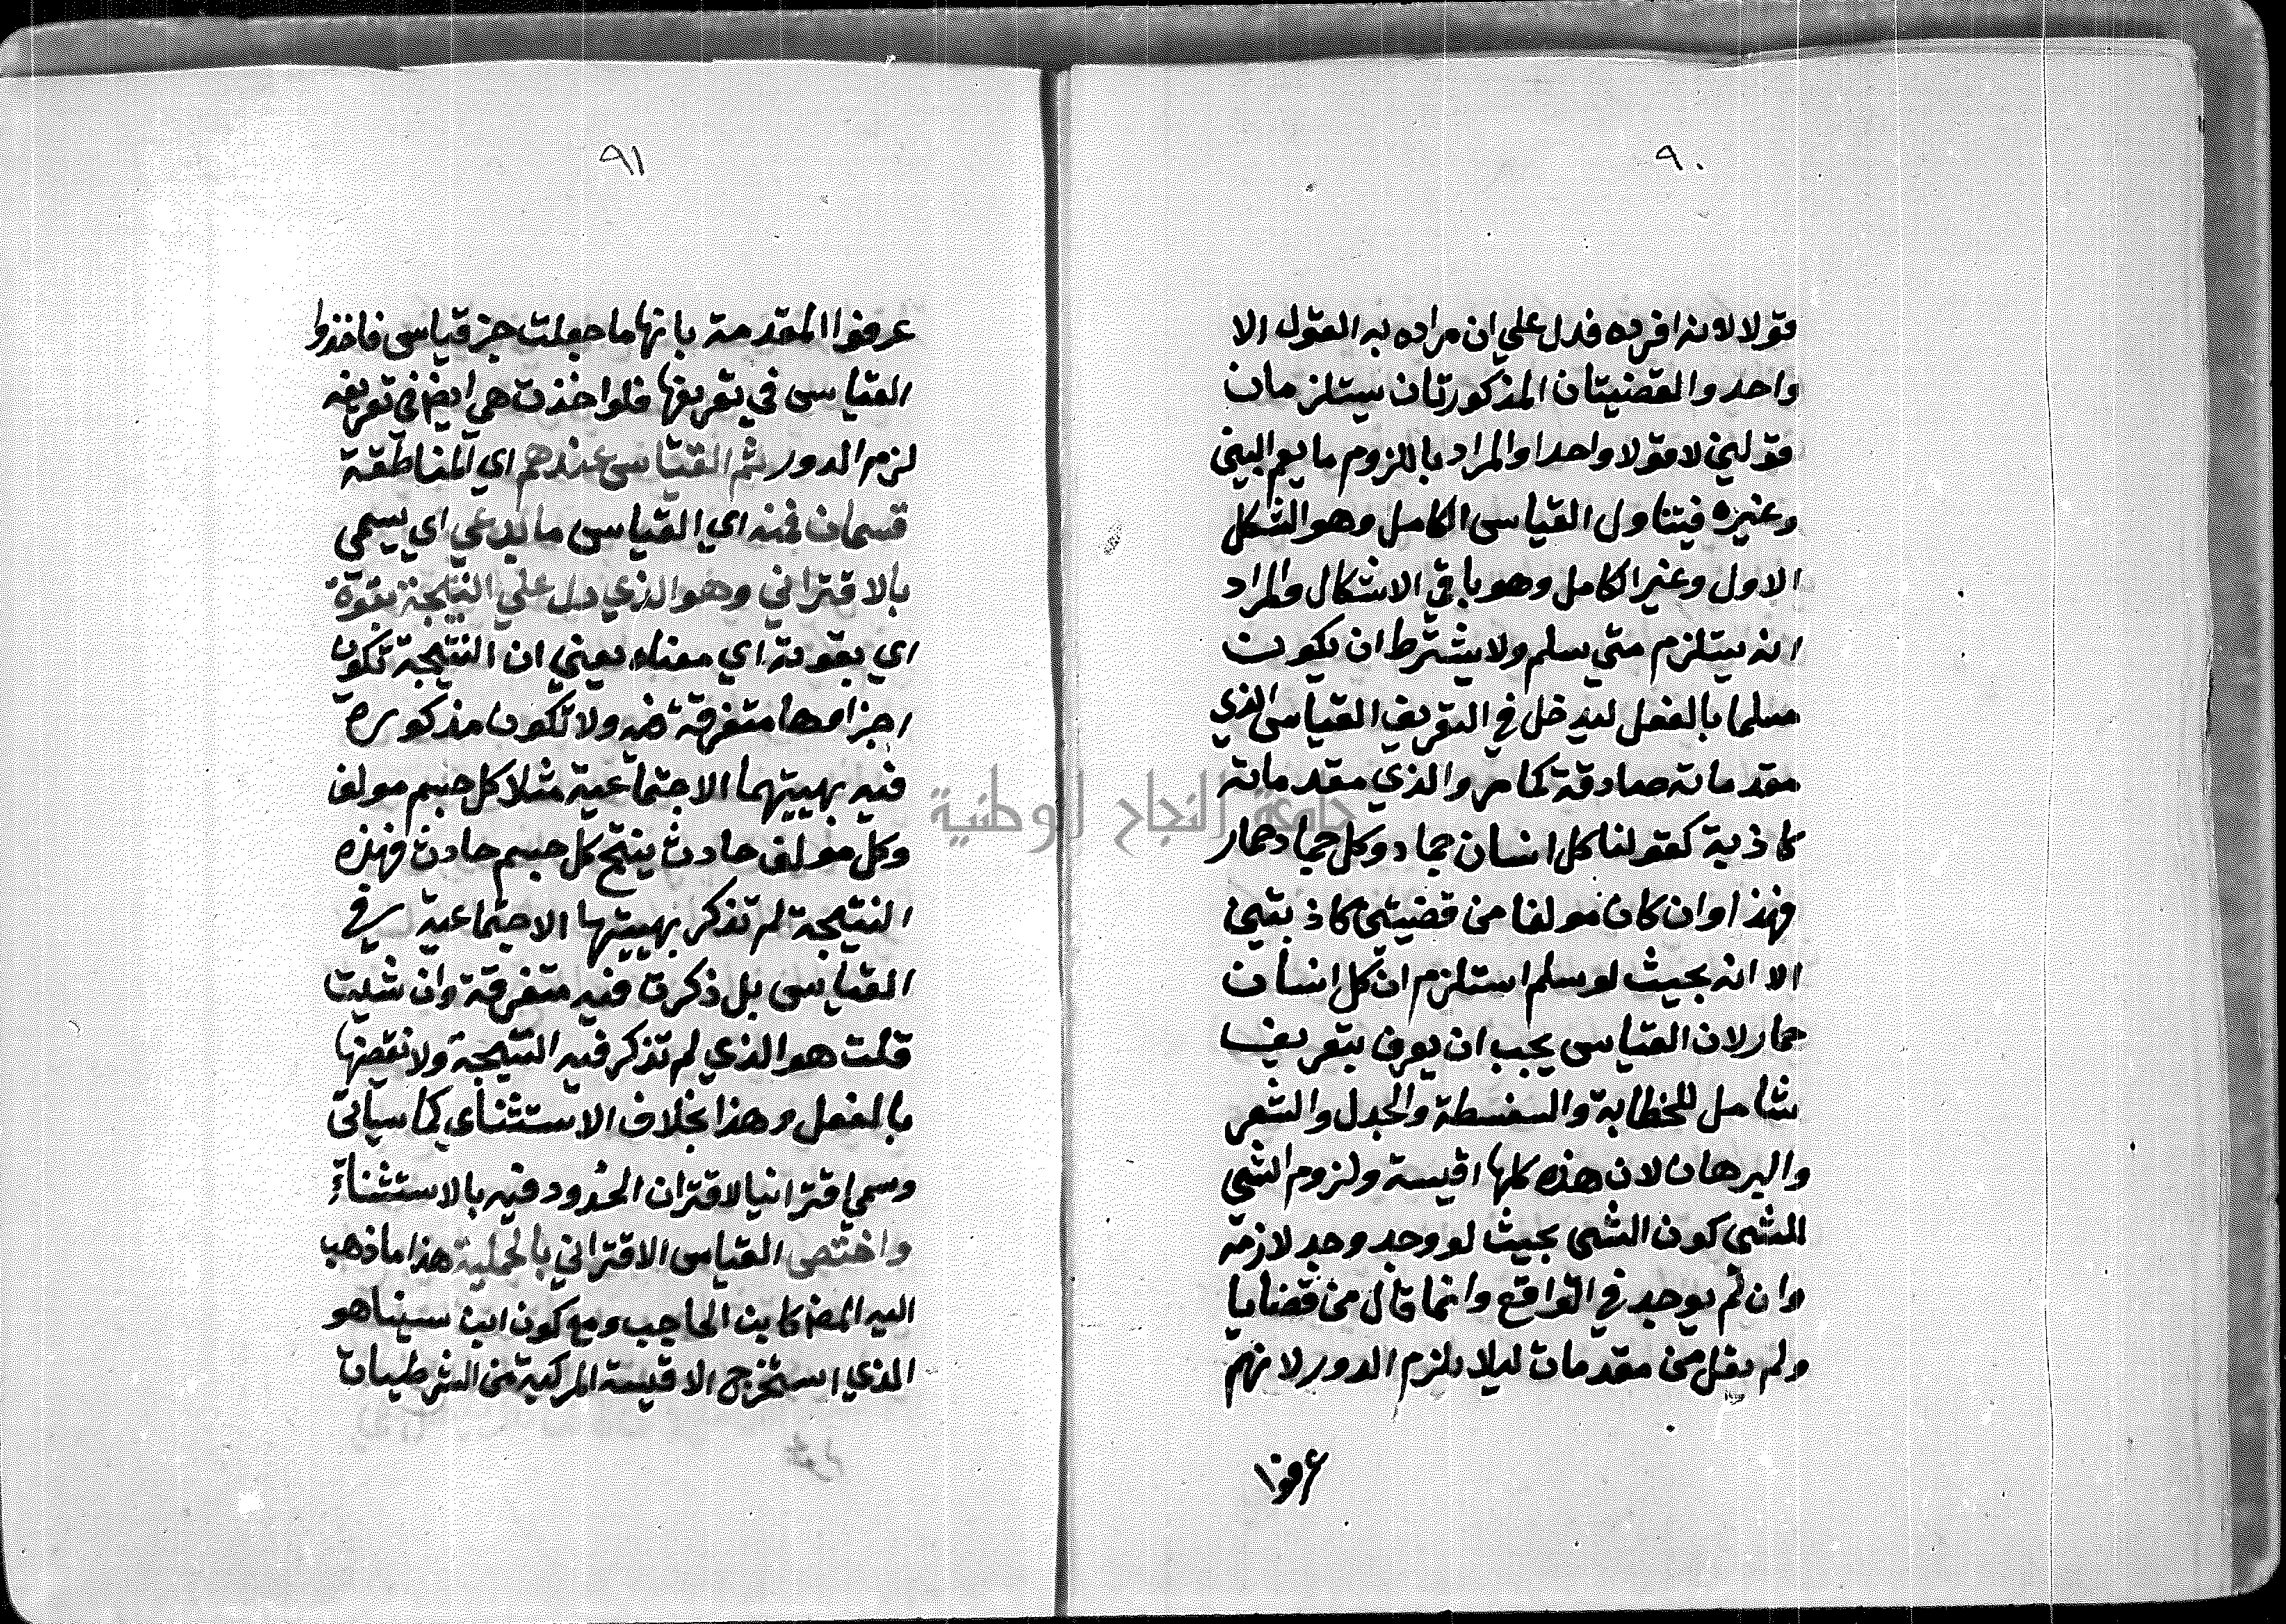 ٩٠
قولا لانه افرده فدل علي ان مراده به القول الا
واحد والقضيتان المذكورتان سيتلزمان
قولين لا قولا واحدا والمراد باللزوم ما يعم البين
وغيره فيتناول القياس الكامل وهو الشكل
الاول وغير الكامل وهو باقي الاشكال والمراد
انه يستلزم متي سلم ولا يشترط ان يكون
مسلما بالفعل ليدخل في التعريف القياس الذي
مقدماته صادقة كما مر والذي مقدماته
كاذبة كقولنا كل انسان جماد وكل جماد حمار
فهذا وان كان مولفا من قضيتين كاذبتين
الا انه بحيث لو سلم استلزم ان كل انسان
حمار لان القياس يجب ان يعرف بتعريف
شامل للخطابة والسفسطة والجدل والشعر
والبرهان لان هذه كلها اقيسة ولزوم الشي
للشي كون الشي بحيث لو وجد وجد لازمه
وان لم يوجد في الواقع وانما قال من قضايا
ولم يقل من مقدمات ليلا يلزم الدور لانهم
عرفوا
٩١
عرفوا المقدمة بانها ما جعلت جز قياس فاخذوا
القياس في تعريفها فلو اخذت هي ايضا في تعريفه
لزم الدور ثم القياس عندهم اي المناطقة
قسمان فمنه اي القياس ما يدعي اي يسمي
بالاقتراني وهو الذي دل علي النتيجة بقوة
اي بقوته اي معناه يعني ان النتيجة تكون
اجزاوها متفرقة فيه ولا تكون مذكورة
فيه بهييتهما الاجتماعية مثلا كل جسم مولف
وكل مولف حادث ينتج كل جسم حادث فهذه
النتيجة لم تذكر بهييتها الاجتماعية في
القياس بل ذكرت فيه متفرقة وان شيت
قلت هو الذي لم تذكر فيه النتيجة ولا نقيضها
بالفعل وهذا بخلاف الاستثناي كما سياتي
وسمي اقترانيا لاقتران الحدود فيه بالاستثناء
واختص القياس الاقتراني بالحملية هذا ما ذهب
اليه المص كابن الحاجب ومع كون ابن سينا هو
الذي استخرج الاقيسة المركبة من الشرطيات
جامعة النجاح الوطنية